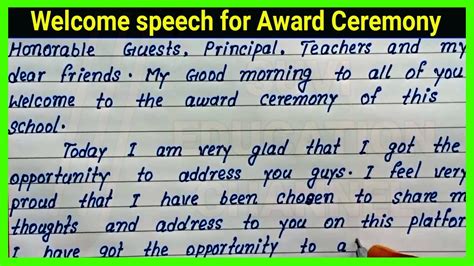 Welcome speech for Award Ceremony
Honorable Guests, Principal, Teachers and my
dear friends. My Good morning to all of you
Welcome to the award ceremony of this
school.
Today I am very glad that I got the
opportunity to address you guys. I feel very
proud that I have been chogen to share m
thoughts and address to you on this platfor
I have got the opportunity to a